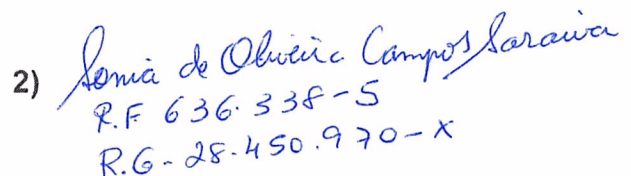 2) Sonia de Oliveira Campos Saraiva
R.F 636.338-5
R.G- 28.450.970-X